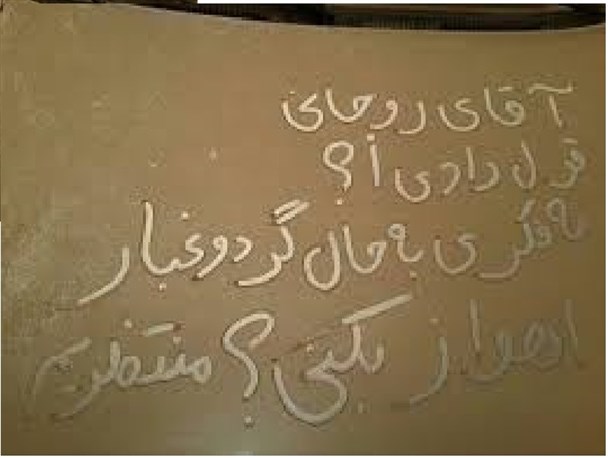 آقای روحانی
قول دادی أ؟
یه فکری به حال گردوغبار
اهواز بکنی؟ منتظریم